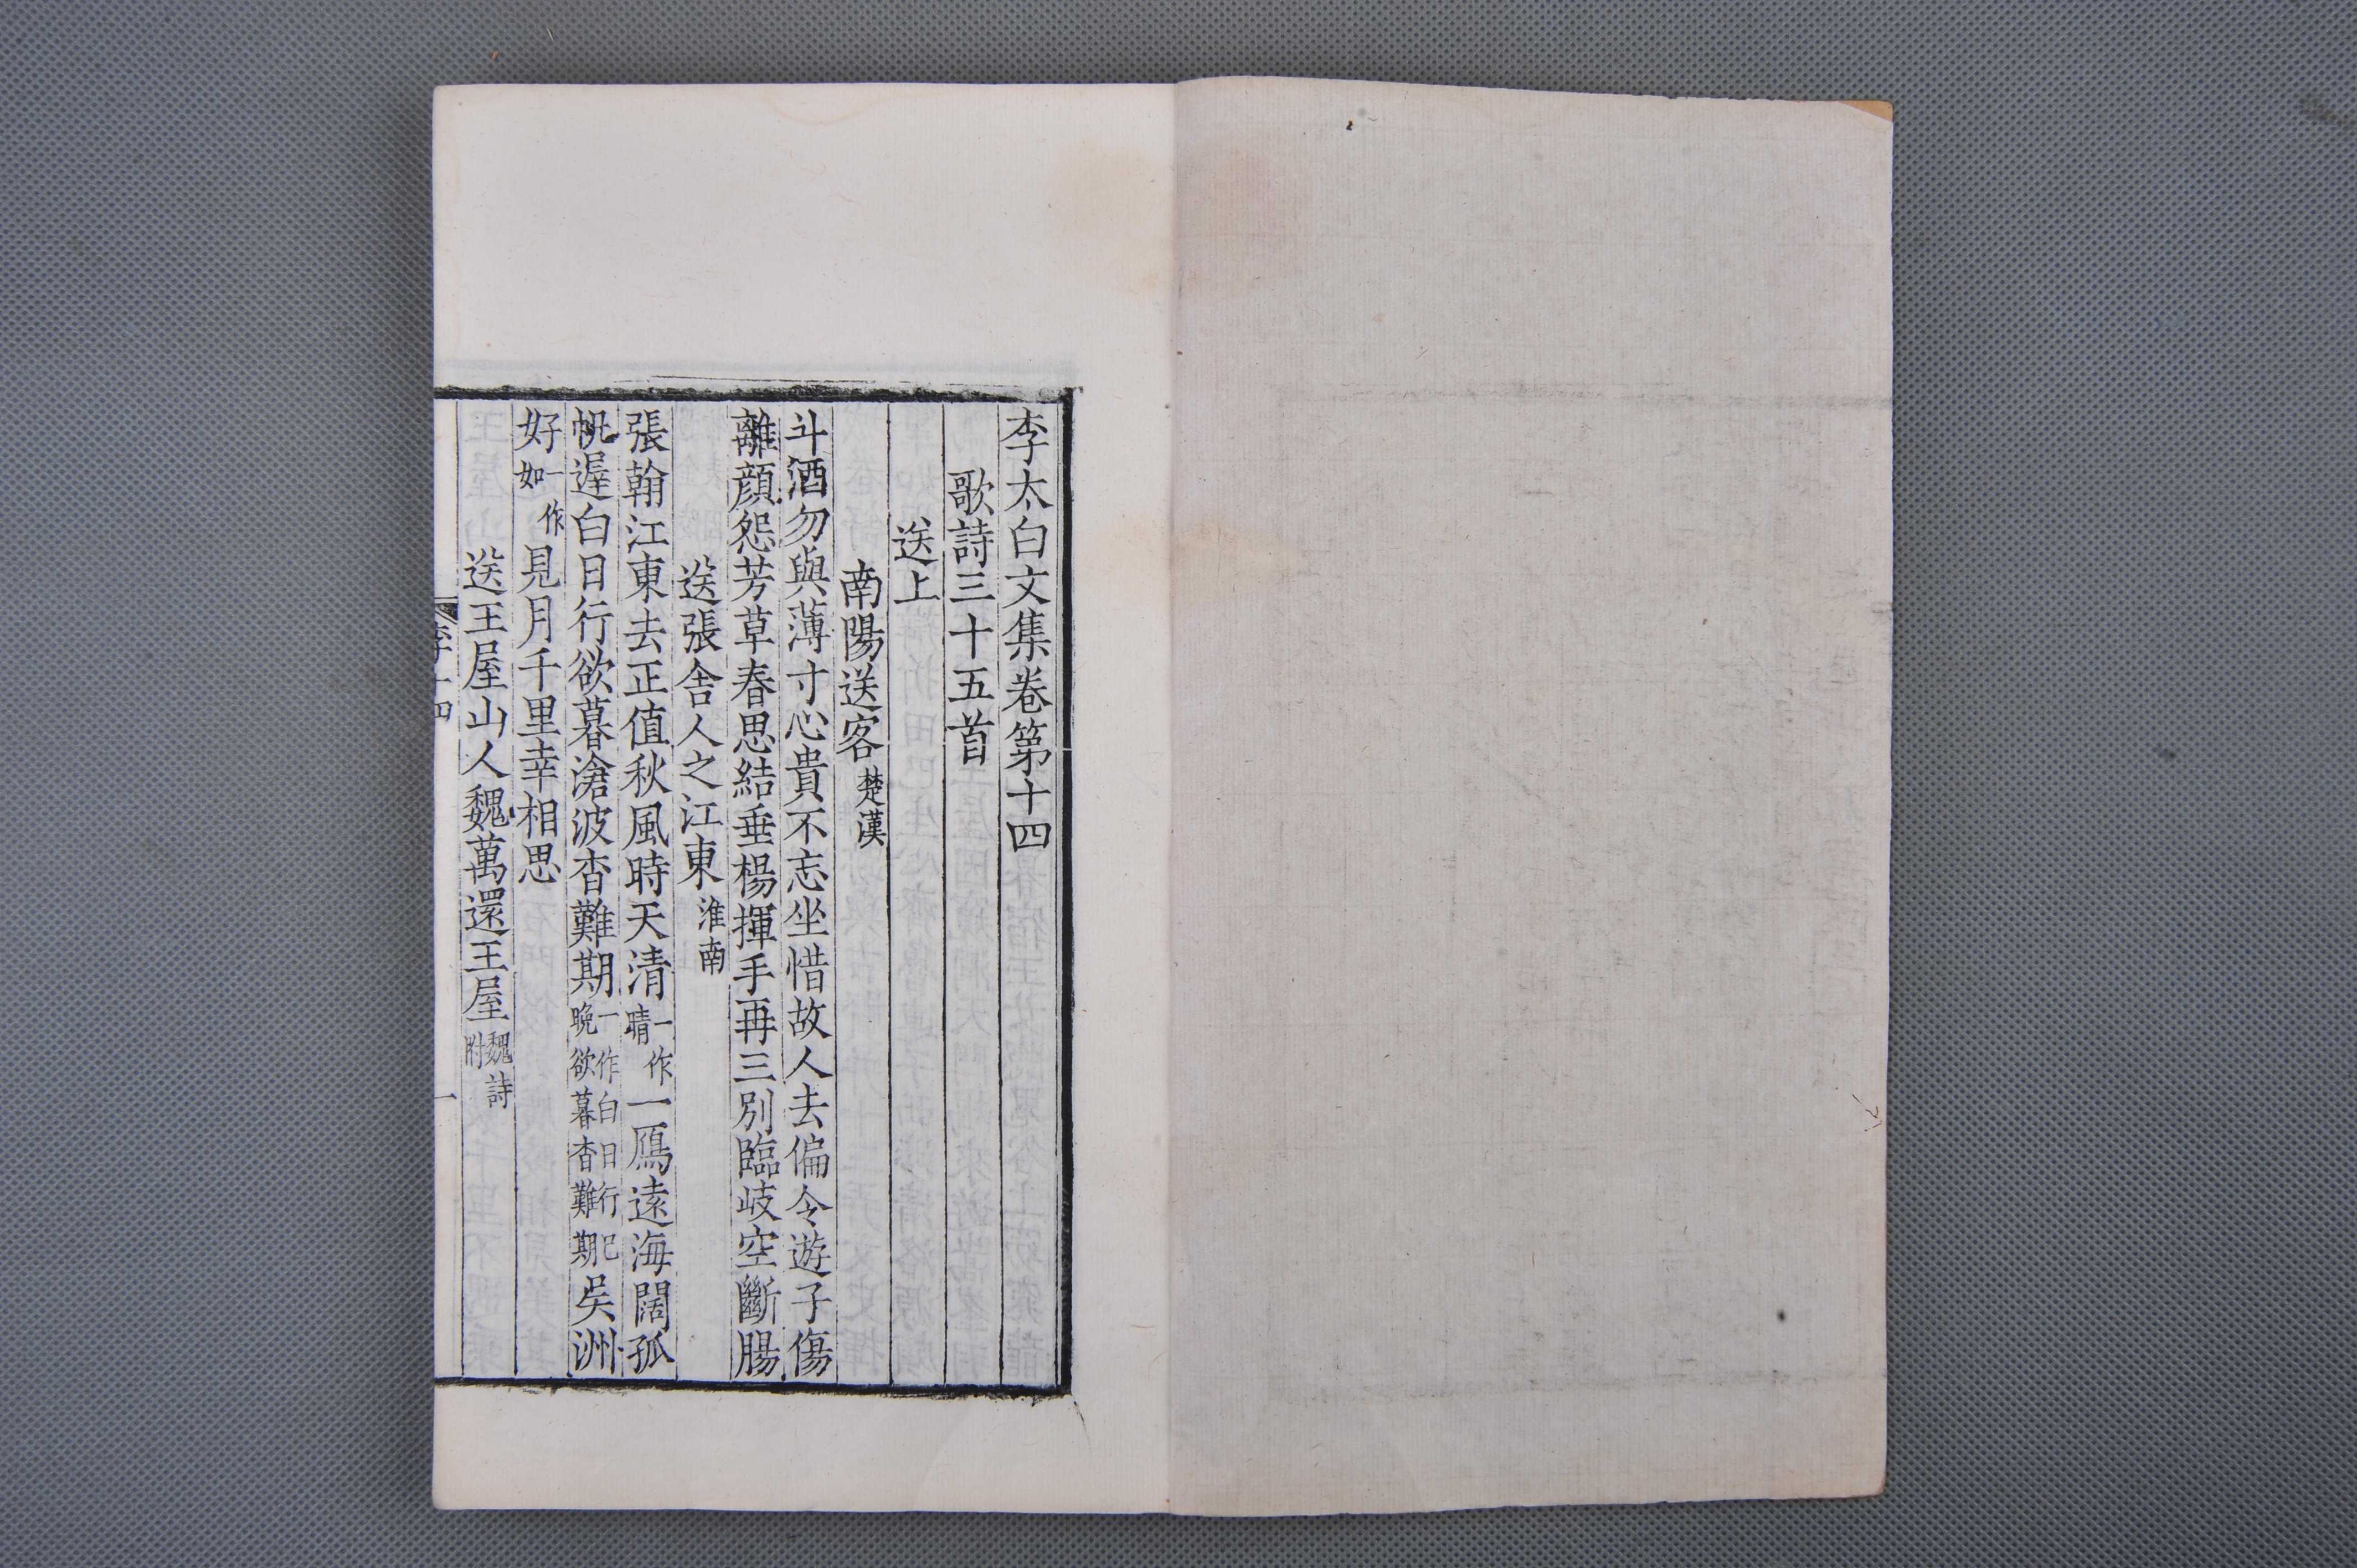 李太白文集卷第十四
歌詩三十五首
送上
南陽送客楚漢
斗酒勿與薄寸心貴不忘坐惜故人去偏令遊子傷
離顔怨芳草春思結垂楊揮手再三別臨岐空斷腸
送張舍人之江東淮南
張翰江東去正值秋風時天清一作晴一鴈遠海闊孤
帆遲白日行欲暮滄波杳難期一作白日行已晚欲暮杳難期吳洲
好一作如見月千里幸相思
送王屋山人魏萬還王屋魏詩附
李十四
一